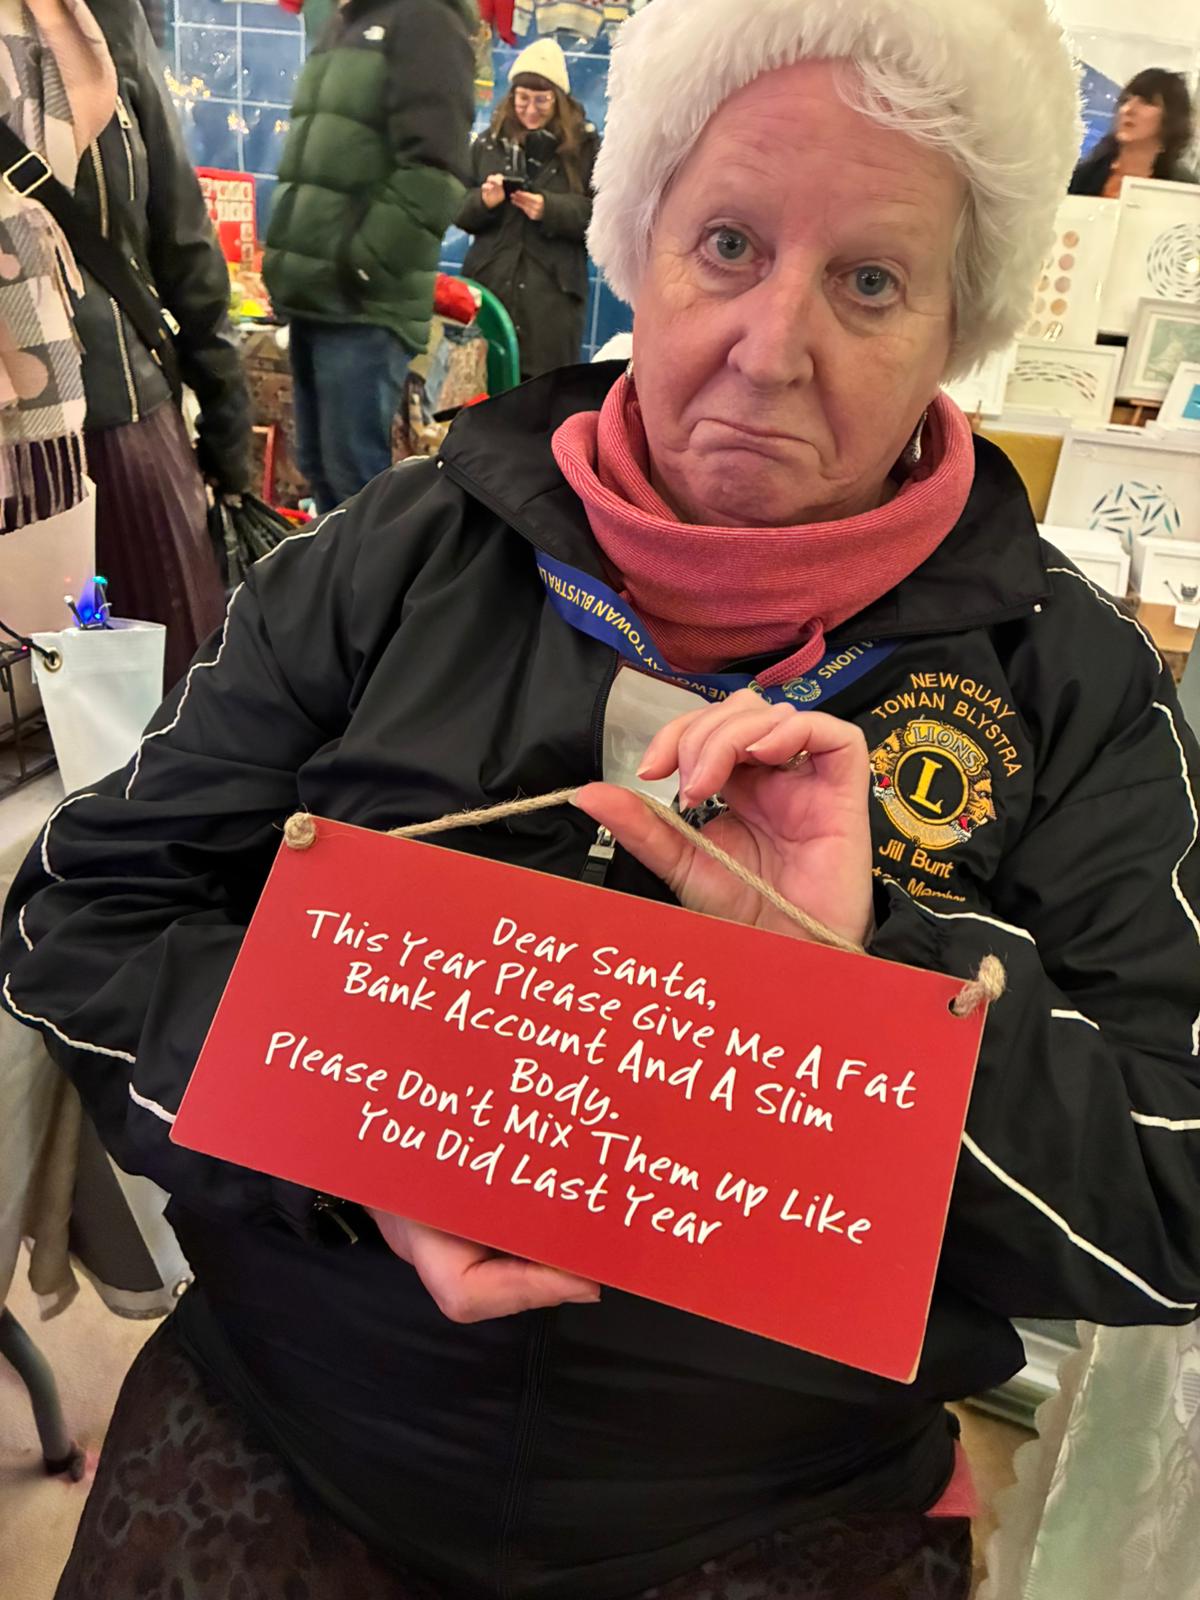 TOWAN BLYSTRA
NEWQUAY
LIONS
NEWQUAY
TOWAN BLYSTRA
LIONS
L
Jill Bunt
Member
Dear Santa,
This Year Please Give Me A Fat
Bank Account And A Slim
Body.
Please Don't Mix Them Up Like
You Did Last Year